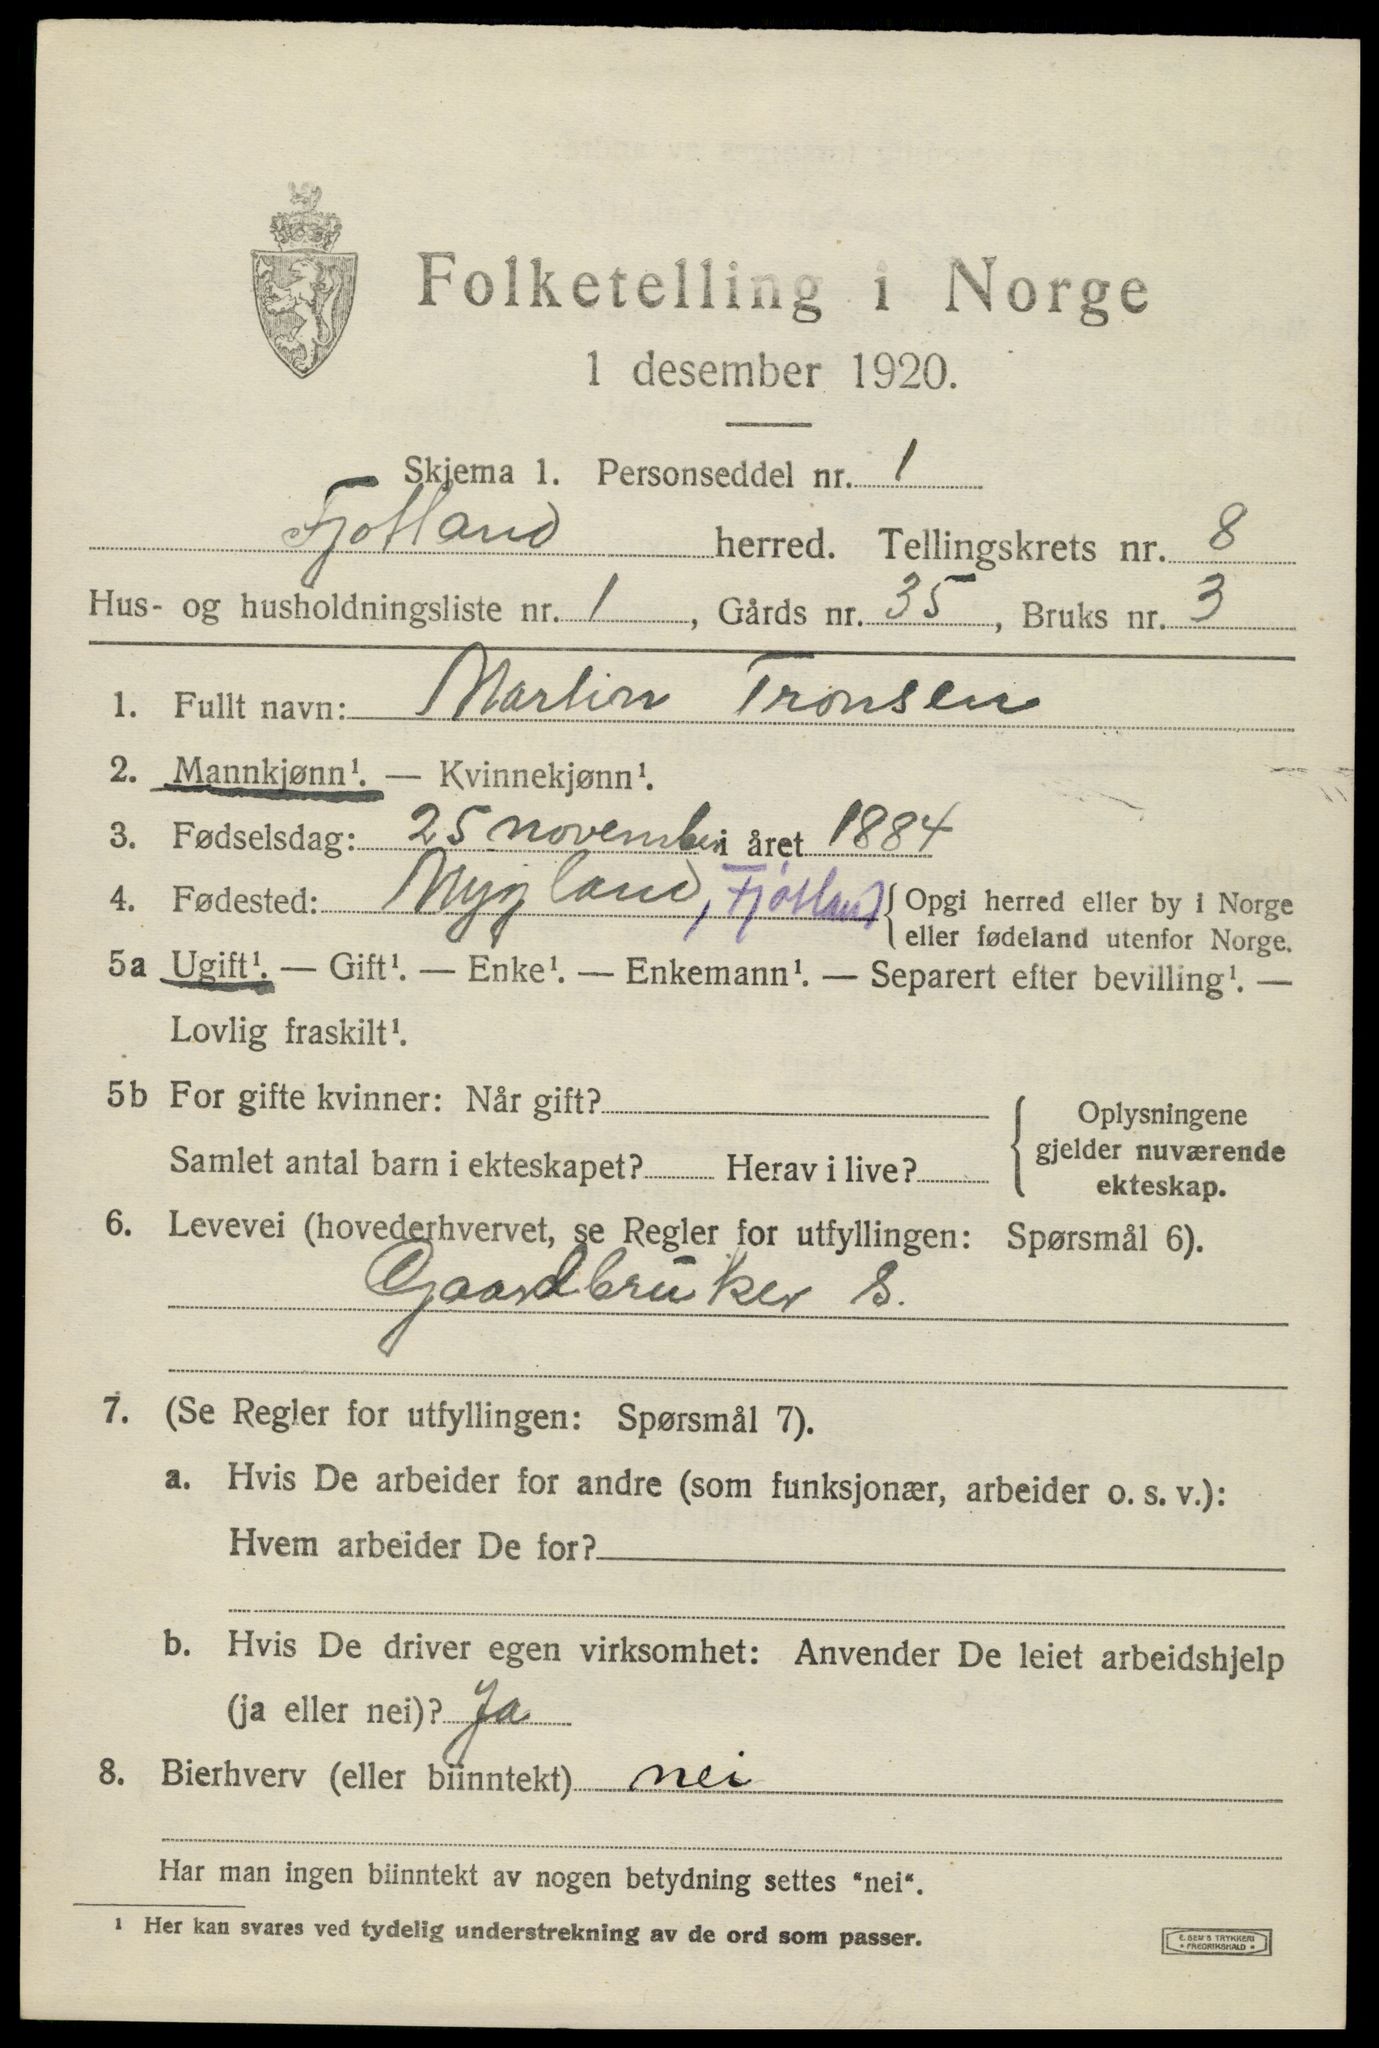 Folketelling i Norge
1 desember 1920.
Skjema 1. Personseddel nr. 1
Fjotland herred. Tellingskrets nr. 8
Hus- og husholdningsliste nr. 1, Gårds nr. 35, Bruks nr. 3
1. Fullt navn: Martin Tronsen
2. Mannkjønn¹. — Kvinnekjønn¹.
3. Fødselsdag: 25 november i året 1884
4. Fødested: Mygland, Fjotland { Opgi herred eller by i Norge
eller fødeland utenfor Norge.
5a Ugift¹. — Gift¹. — Enke¹. — Enkemann¹. — Separert efter bevilling¹. —
Lovlig fraskilt¹.
5b For gifte kvinner: Når gift?
Samlet antal barn i ekteskapet? Herav i live?
Oplysningene
gjelder nuværende
ekteskap.
6. Levevei (hovederhvervet, se Regler for utfyllingen: Spørsmål 6).
Gaardbruker S.
7. (Se Regler for utfyllingen: Spørsmål 7).
a. Hvis De arbeider for andre (som funksjonær, arbeider o. s. v.):
Hvem arbeider De for?
b. Hvis De driver egen virksomhet: Anvender De leiet arbeidshjelp
(ja eller nei)? Ja
8. Bierhverv (eller biinntekt) nei
Har man ingen biinntekt av nogen betydning settes "nei".
¹ Her kan svares ved tydelig understrekning av de ord som passer.
E. SEM'S TRYKKERI
* FREDRIKSHALD *